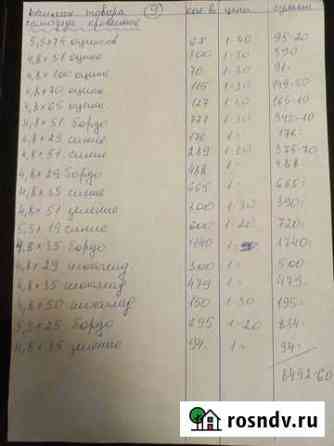 товара (9) кол-в цена сумма
саморезы кровельные
5,5×75 оцинков 68 1-40 95-20
4,8×51 оцинк 300 1-30 390
4,8× оцинк 70 1-30 91-
4,8×70 оцинк 115 1-30 149-50
4,8×65 оцинк 127 1-30 165-10
4,8×51 бордо 1-30
4,8×29 синие 176 1- 176-
4,8×51 синие 289 1-30 375-70
4,8×29 бордо 488 1- 488-
4,8×35 синие 665 1- 665-
4,8×51 зеленые 300 1-30 390-
5,5×19 синие 600 1-20 720-
4,8×35 бордо 1740 1- 1740-
4,8×29 шоколад 500 1- 500
4,8×35 шоколад 479 1- 479-
4,8×50 шоколад 150 1-30 195-
5,5×25 бордо 695 1-20 834-
4,8×35 зеленые 94 1- 94-
8492-60
rosndv.ru